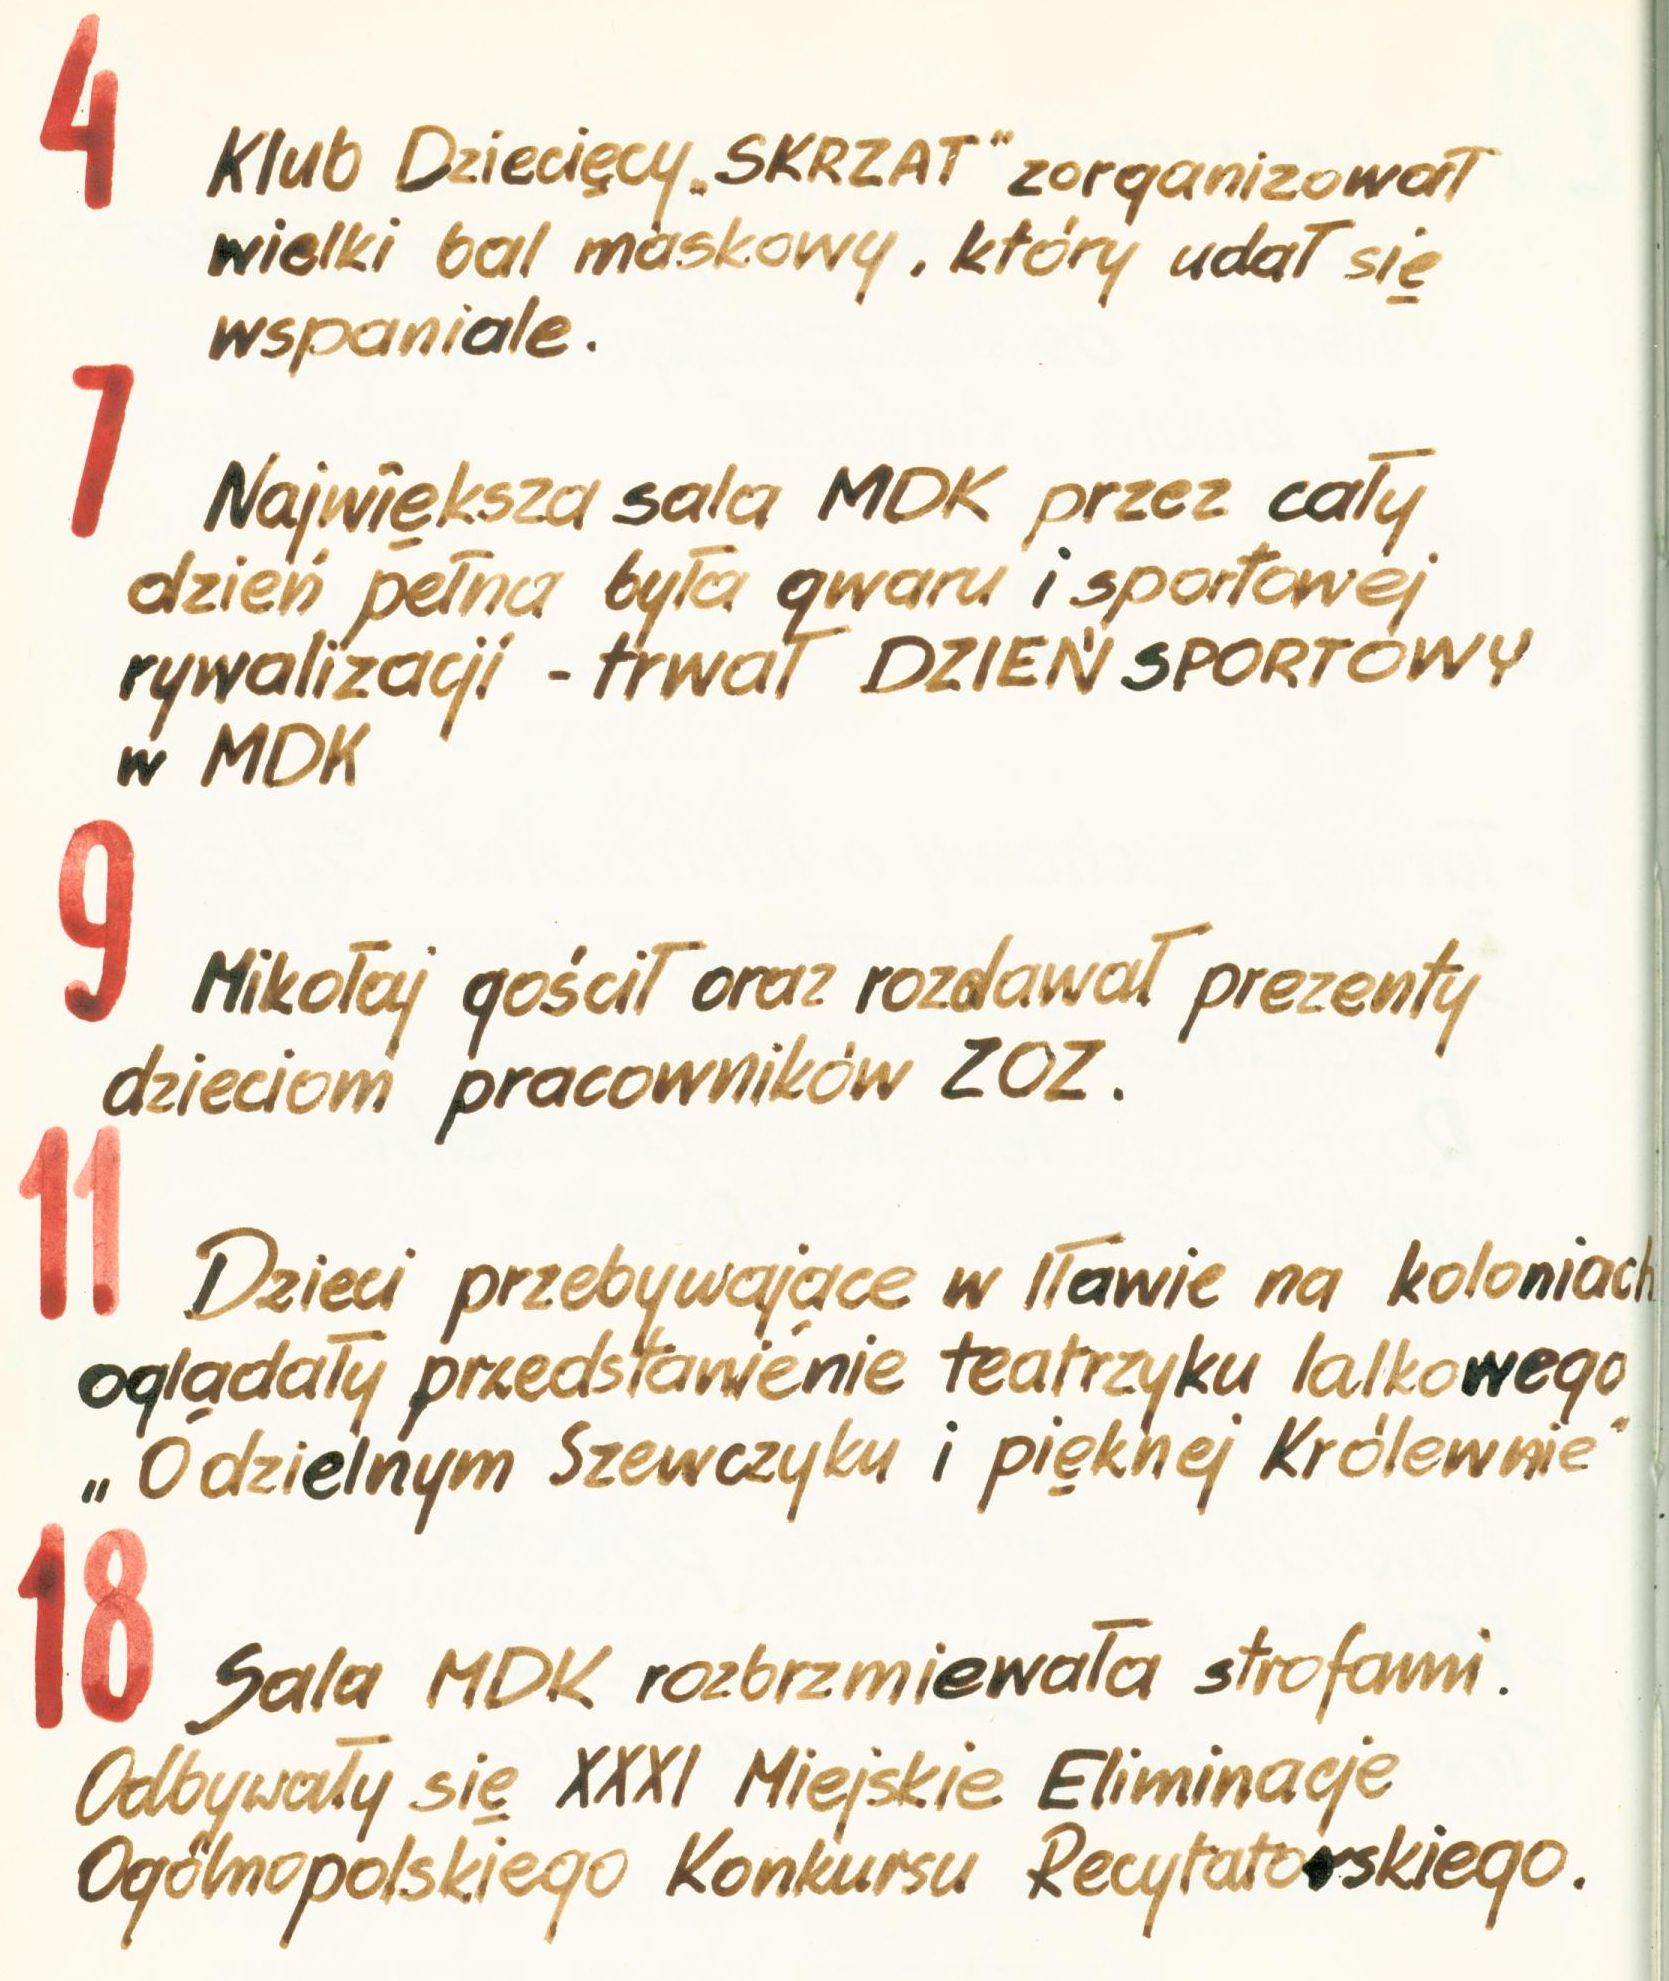 4
Klub Dziecięcy „SKRZAT" zorganizował
wielki bal maskowy, który udał się
wspaniale.
7
Największa sala MDK przez cały
dzień pełna była gwaru i sportowej
rywalizacji - trwał DZIEŃ SPORTOWY
w MDK
9
Mikołaj gościł oraz rozdawał prezenty
dzieciom pracowników ZOZ.
11
Dzieci przebywające w Iławie na koloniach
oglądały przedstawienie teatrzyku lalkowego
„O dzielnym Szewczyku i pięknej Królewnie"
18
Sala MDK rozbrzmiewała strofami.
Odbywały się XXXI Miejskie Eliminacje
Ogólnopolskiego Konkursu Recytatorskiego.